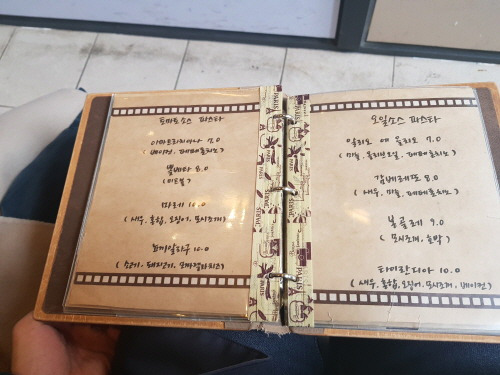 토마토소스 파스타
아마트리치아나 7.0
(베이컨, 페페론치노)
뽈베타 8.0
(미트볼)
마레 10.0
(새우, 홍합, 오징어, 모시조개)
10.0
오일소스 파스타
알리오 에 올리오 7.0
(마늘, 올리브오일, 페페론치노)
감베레또 8.0
(새우, 마늘, 페페론치노)
봉골레 9.0
(모시조개, 호박)
타이란디아 10.0
(새우, 홍합, 오징어, 모시조개, 베이컨)
PARIS